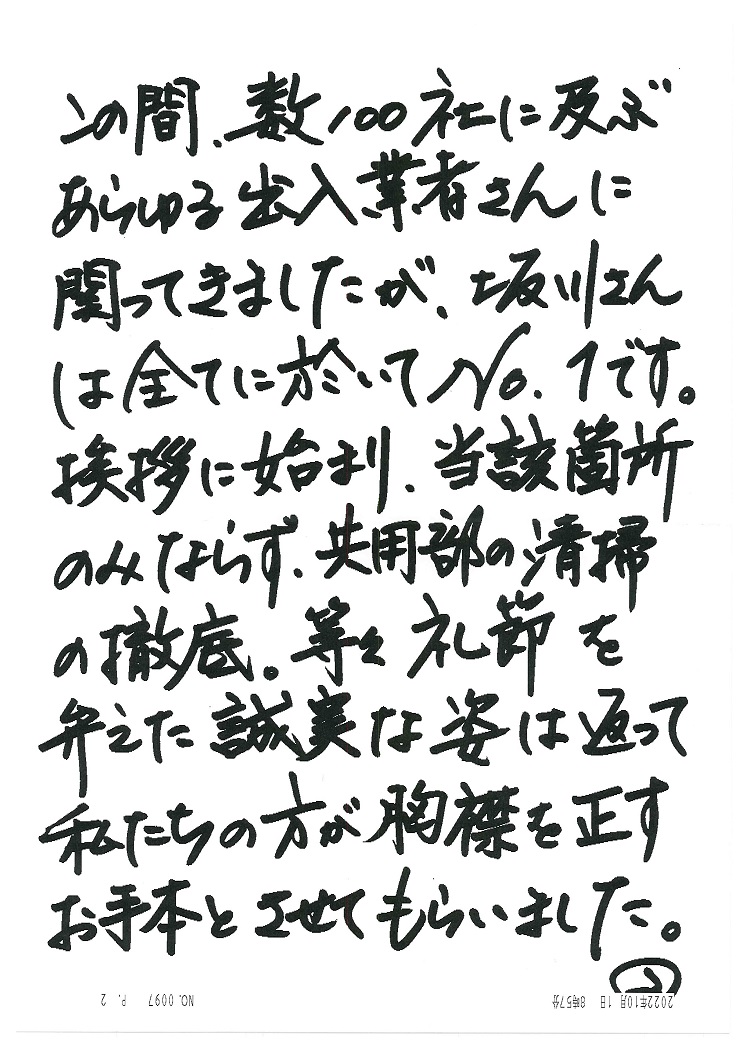 この間、数100社に及ぶ
あらゆる出入業者さんに
関ってきましたが、坂川さん
は全てに於いてNo.1です。
挨拶に始まり、当該箇所
のみならず、共用部の清掃
の徹底。等々礼節を
弁えた誠実な姿は返って
私たちの方が胸襟を正す
お手本とさせてもらいました。
2
2022年10月 1日 8時57分
NO. 0097 P. 2